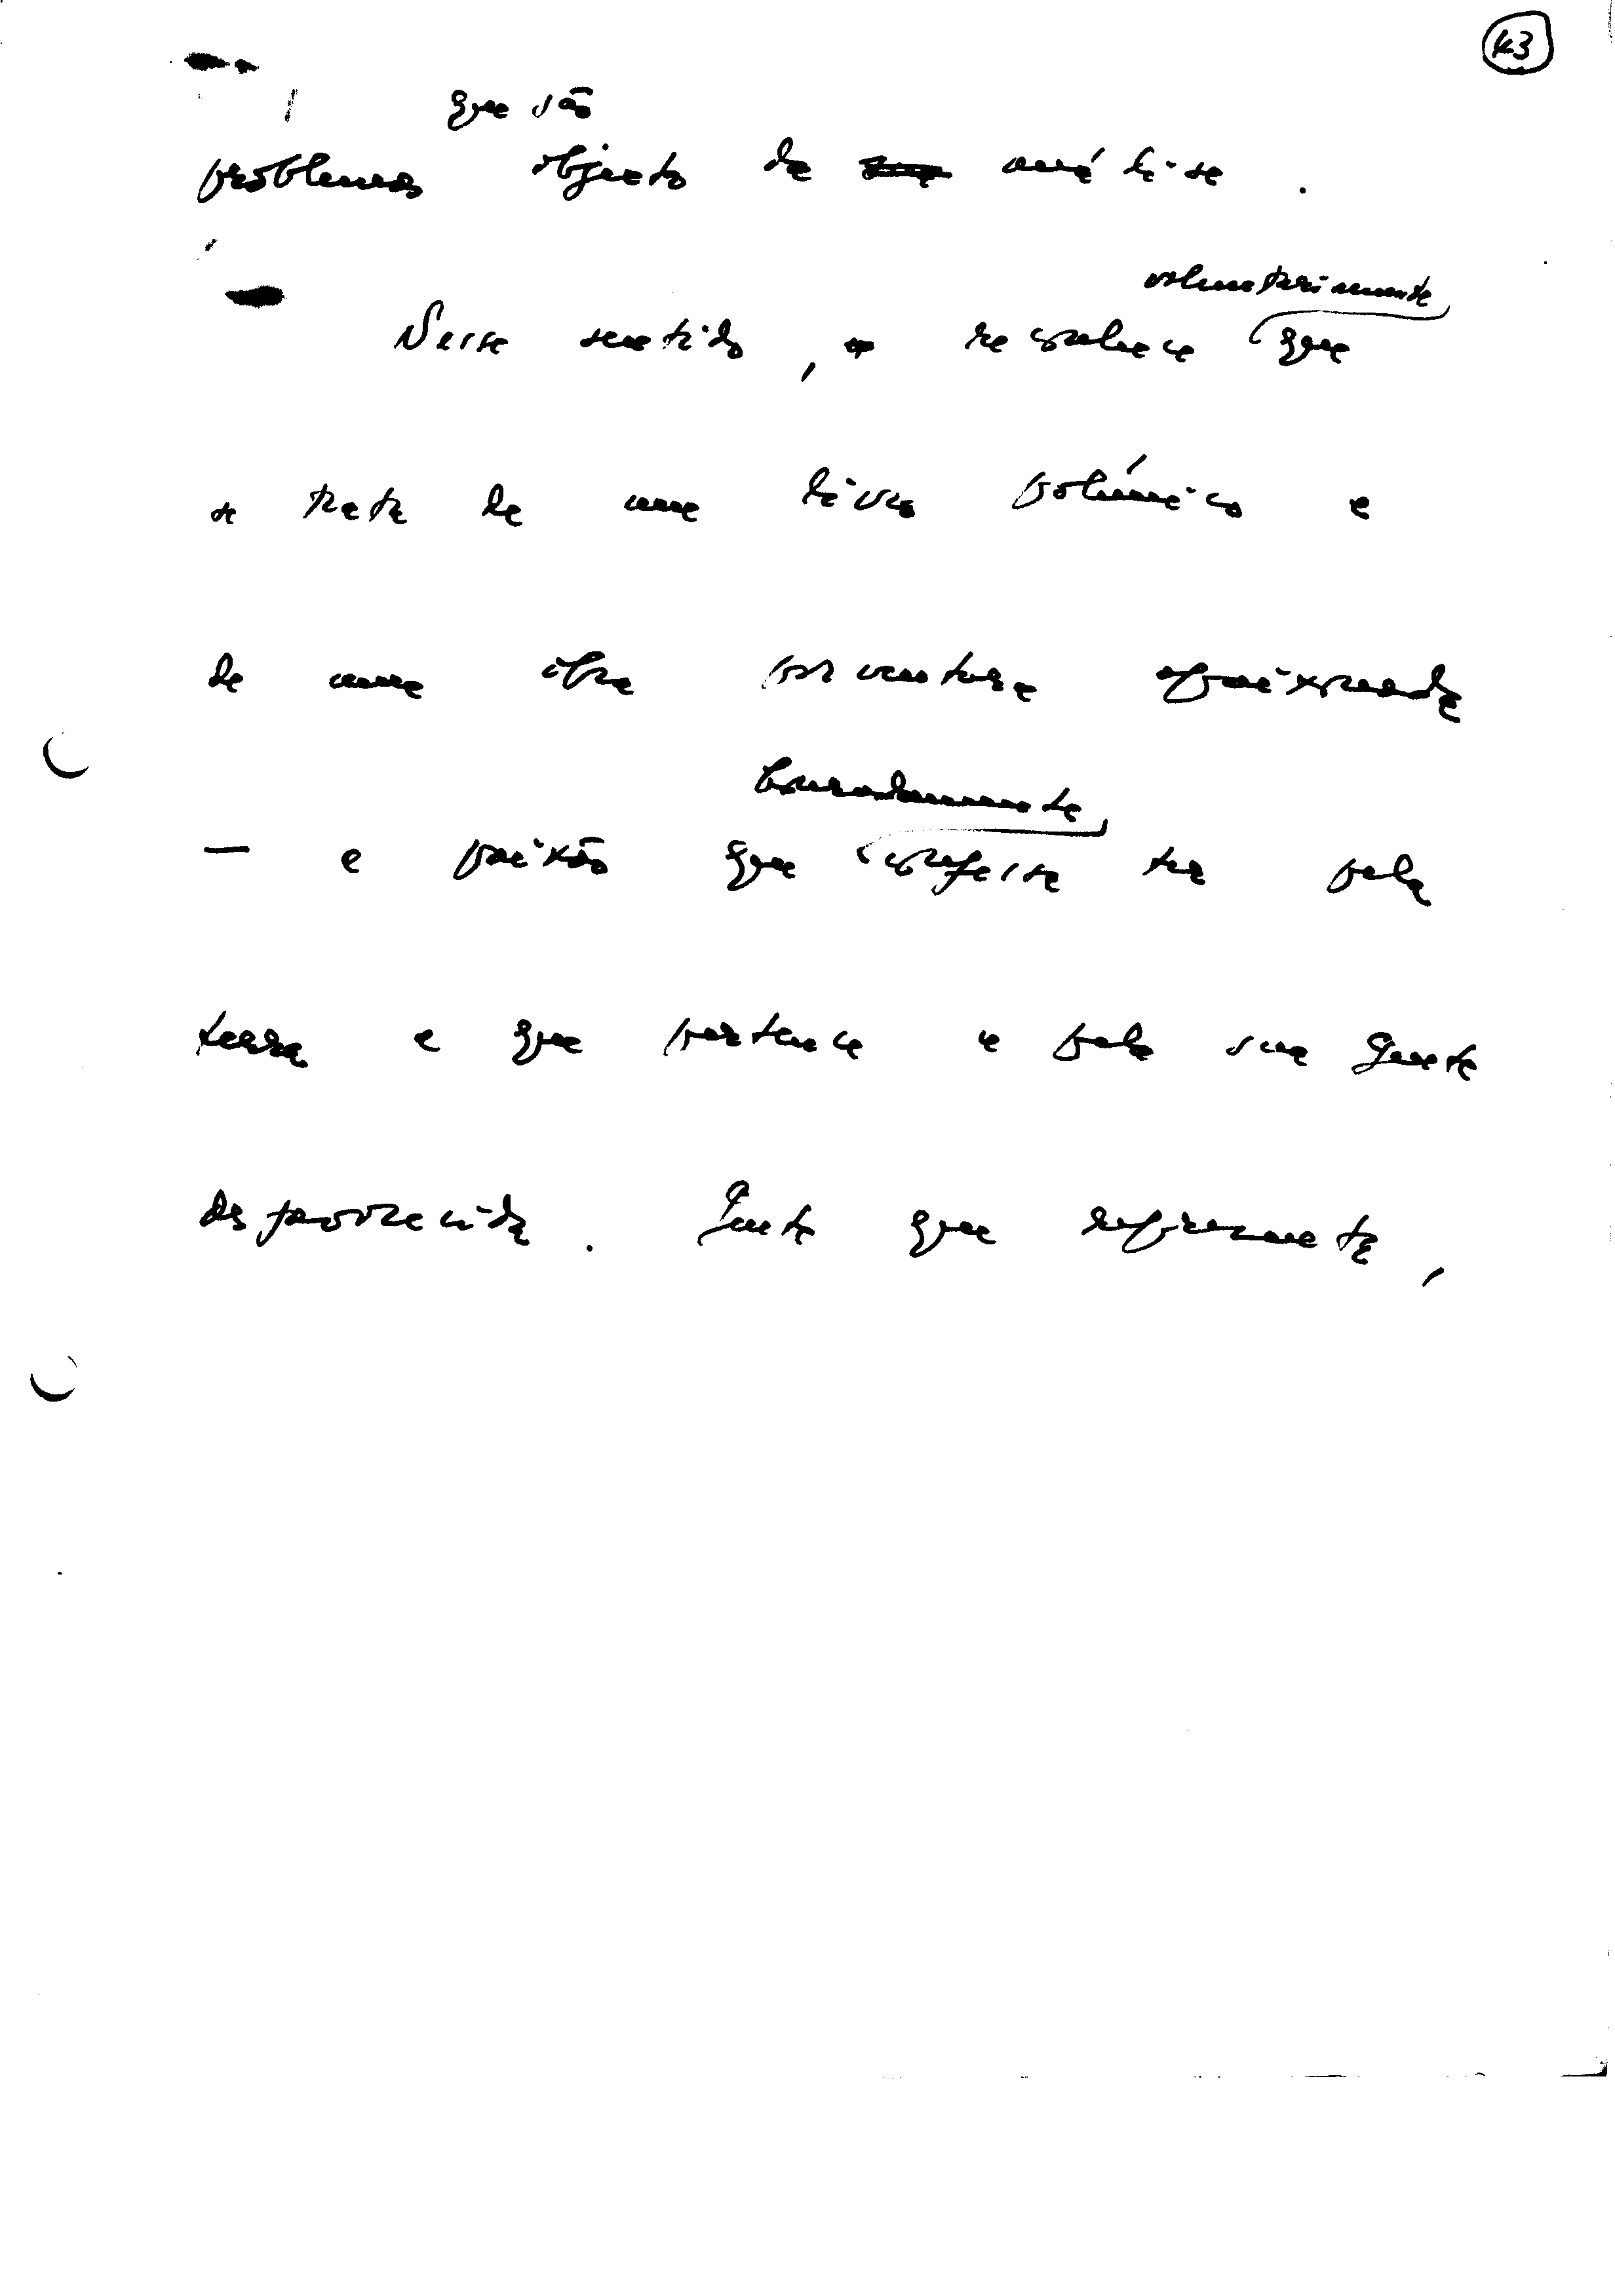 43
que são
problemas objecto de análise.
voluntariamente
Nesse sentido, reconhece que
se trata de um livro polémico e
de uma obra porventura apaixonada
honradamente
— a paixão que confessa ter pela
terra a que pertence e pela sua gente
desfavorecida. Gente que representa,